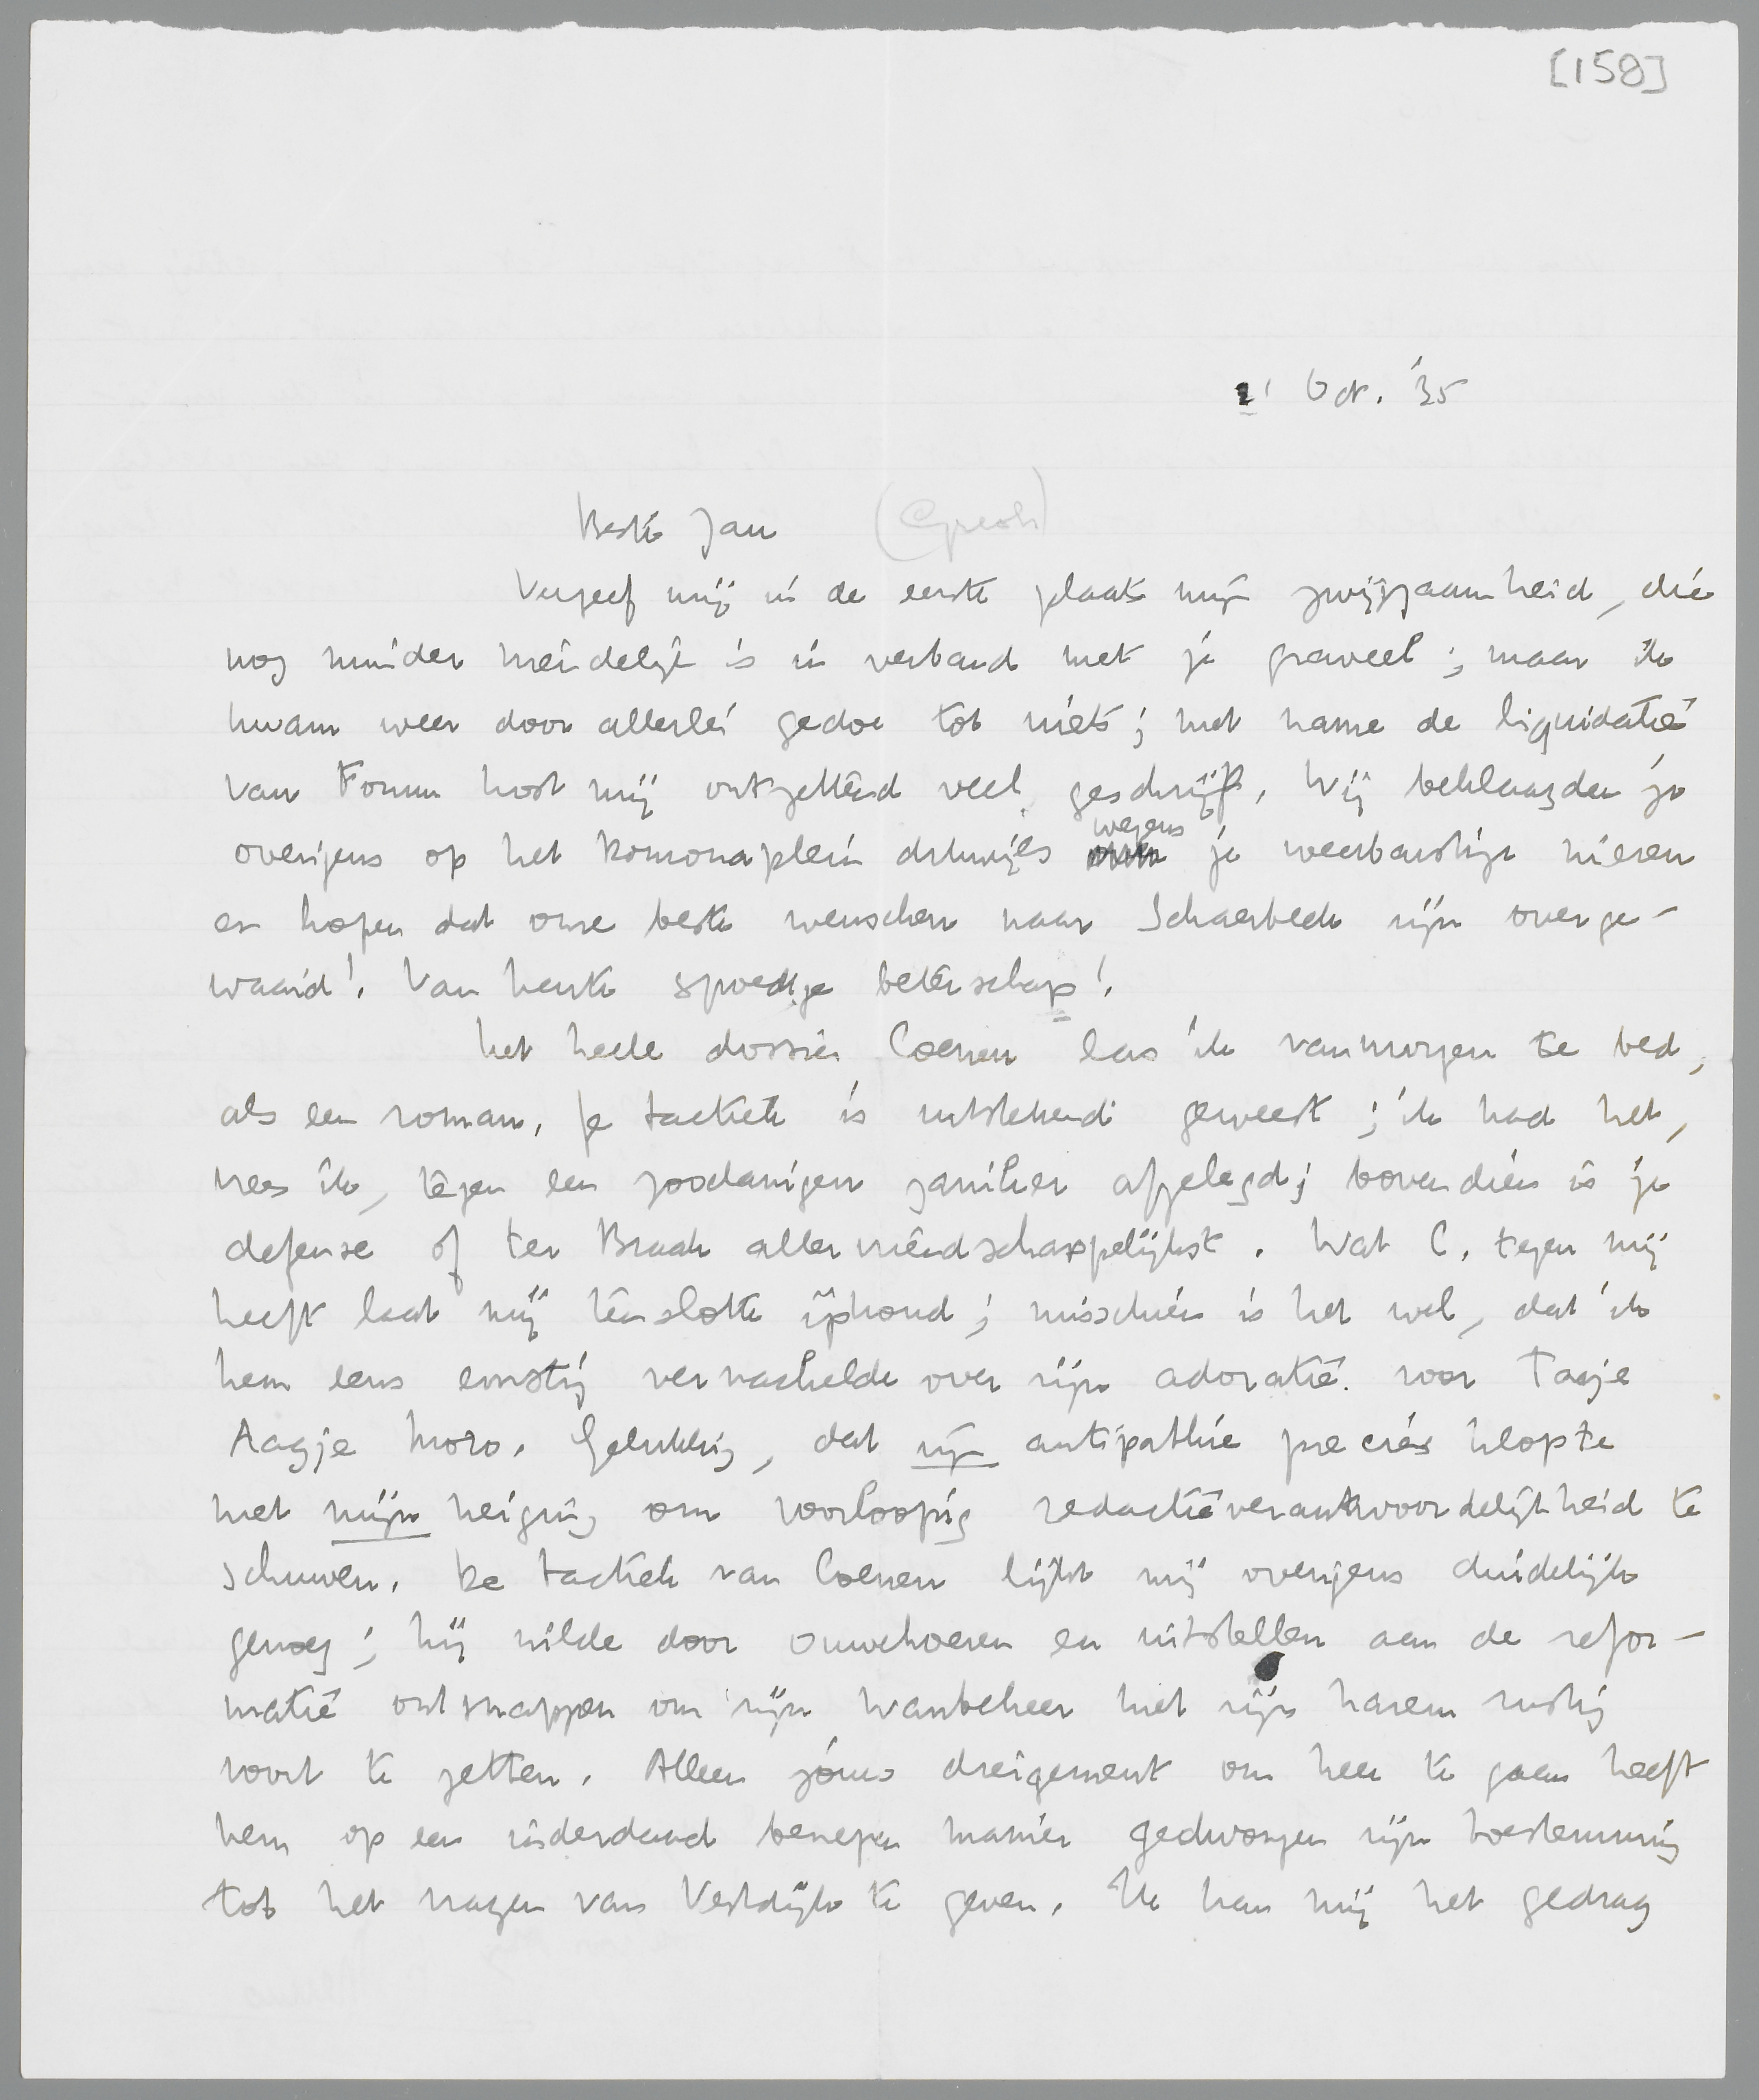 [158]
1 Oct. '35
Beste Jan (Gresh)
Vergeef mij in de eerste plaats mijn zwijgzaamheid, die
nog minder vriendelijk is in verband met je graveel; maar ik
kwam weer door allerlei gedoe tot niets; met name de liquidatie
van Forum kost mij ontzettend veel geschrijf. Wij beklaagden je
overigens op het Pomonaplein drukwijls wegens je weerbarstige nieren
en hopen dat onze beste wenschen naar Schaerbeek zijn overge-
waaid! Van harte spoedige beterschap!
Het heele dossier Coenen las ik vanmorgen te bed,
als een roman. Je tactiek is uitstekend geweest; ik had het,
vrees ik, tegen een zoodanigen zaniker afgelegd; bovendien is je
defense of ter Braak allervriendschappelijkst. Wat C. tegen mij
heeft laat mij tenslotte ijskoud; misschien is het wel, dat ik
hem eens ernstig vernachelde over zijn adoratie voor Taagje
Aagje Moro. Gelukkig, dat zijn antipathie precies klopte
met mijn neiging om voorloopig redactieverantwoordelijkheid te
schuwen. De tactiek van Coenen lijkt mij overigens duidelijk
genoeg; hij wilde door ouwehoeren en uitstellen aan de refor-
matie ontsnappen om zijn wanbeheer met zijn harem rustig
voort te zetten. Alleen jouw dreigement om heen te gaan heeft
hem op een inderdaad benepen manier gedwongen zijn toestemming
tot het vragen van Vestdijk te geven. Ik kan mij het gedrag